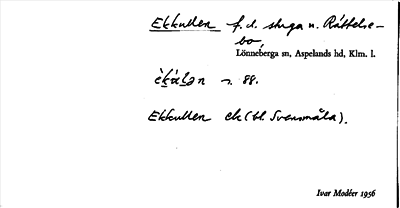 Ekkullen f.d. stuga u. Råttelse-
bo,
Lönneberga sn, Aspelands hd, Klm. l.
88.
Ekkullen ek (bl. Svensmåla).
Ivar Modéer 1956